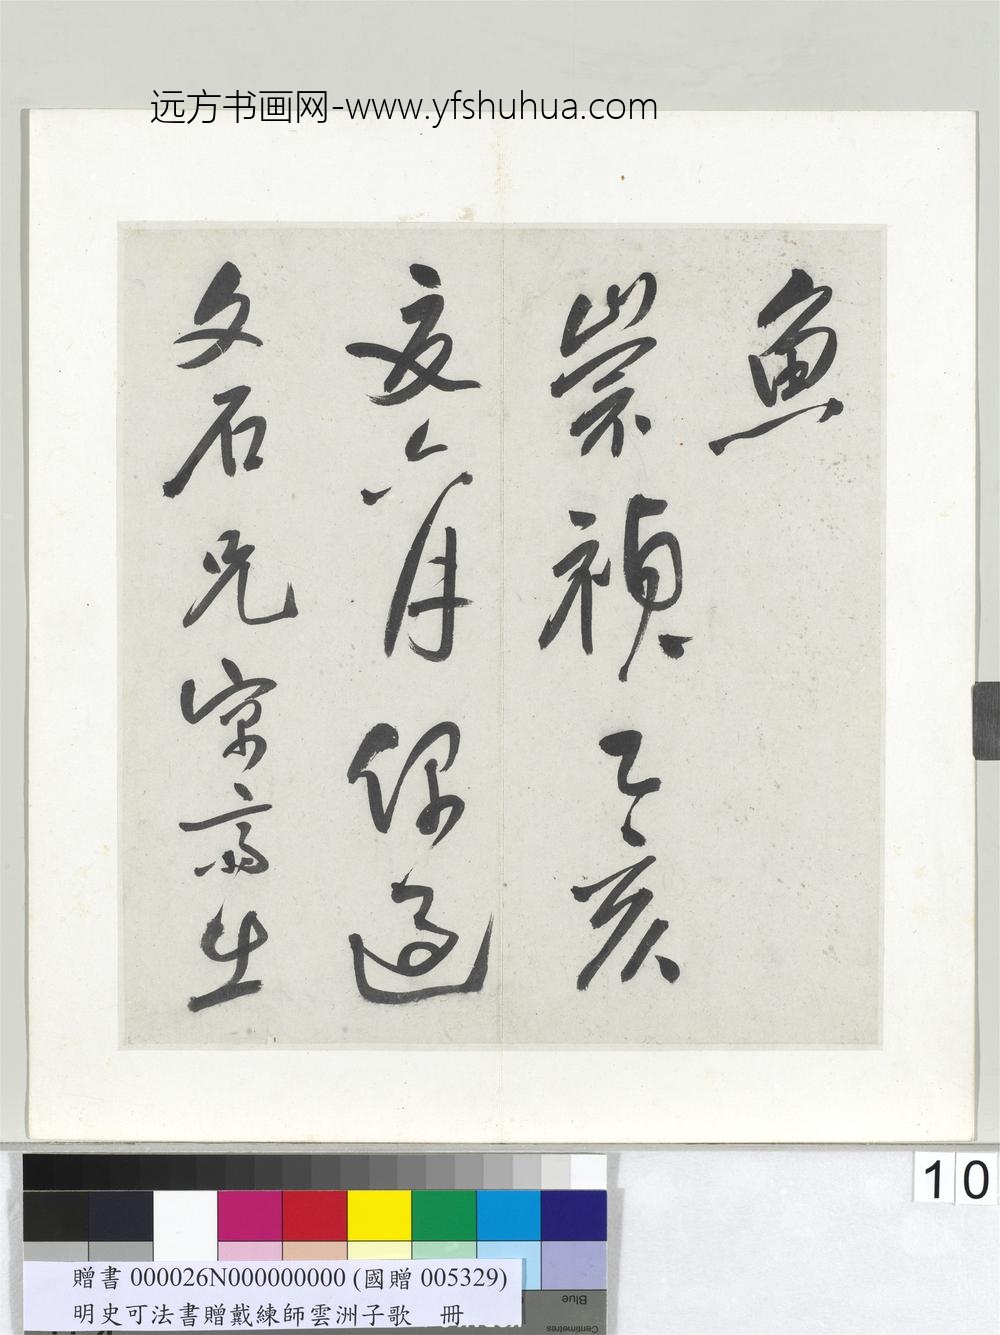 远方书画网-www.yfshuhua.com
魚
崇禎乙亥
夏六月偶過
文石兄宗齋出
10
贈書 000026N000000000 (國贈 005329)
明史可法書贈戴練師雲洲子歌 冊
Blue
Centimetres